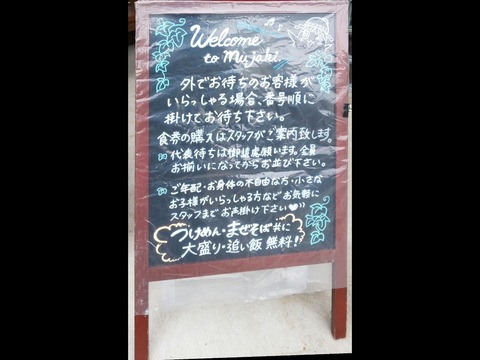 Welcome
to mujaki.
外でお待ちのお客様が
いらっしゃる場合、番号順に
掛けてお待ち下さい。
食券の購入はスタッフがご案内致します。
代表待ちは御遠慮願います。全員
お揃いになってからお並び下さい。
ご年配・お身体の不自由な方・小さな
お子様がいらっしゃる方など お気軽に
スタッフまで お声掛け下さい♥
つけめん・まぜそば共に
大盛り・追い飯 無料!